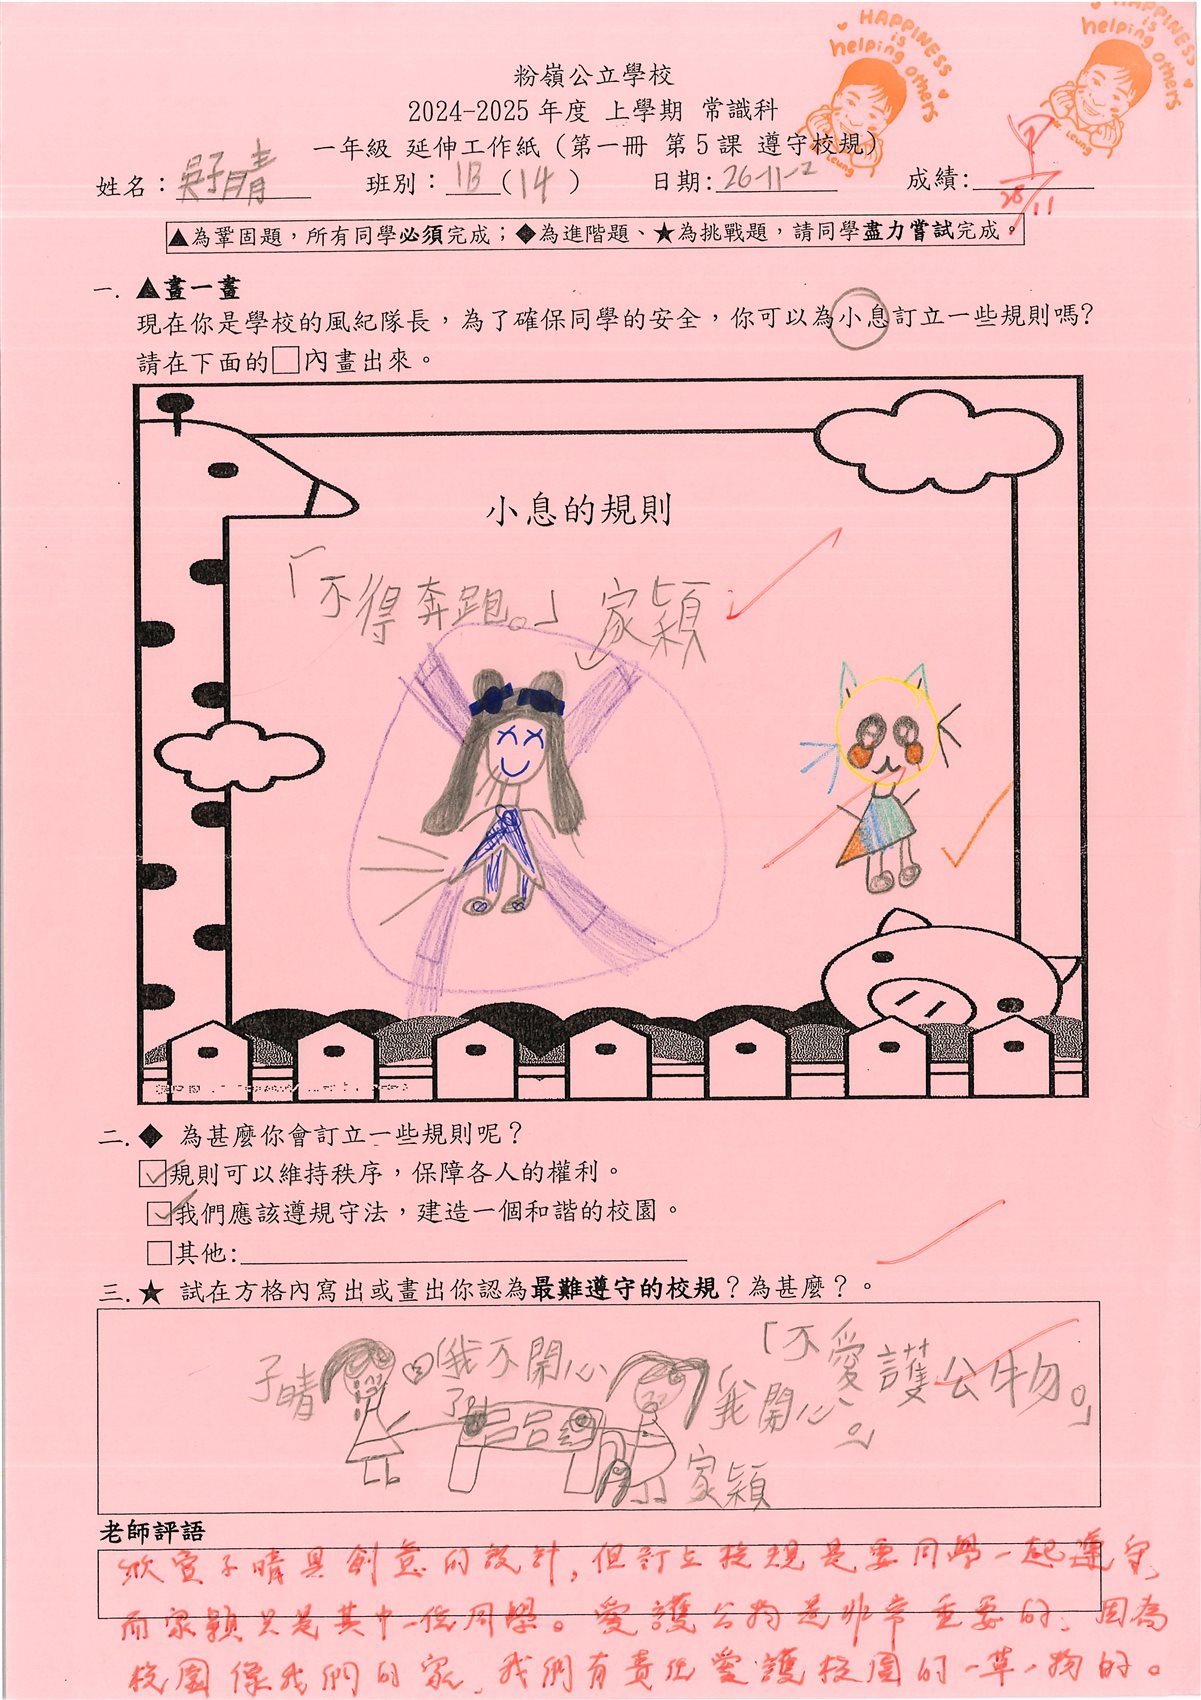 HAPPINESS
is
helping others
Leung
HAPPINESS
is
helping others
Leung
粉嶺公立學校
2024-2025 年度 上學期 常識科
一年級 延伸工作紙 (第一冊 第 5 課 遵守校規)
姓名：吳子晴 班別：1B(14) 日期: 26-11-2 成績: 甲
26/11
▲為鞏固題，所有同學必須完成；◆為進階題、★為挑戰題，請同學盡力嘗試完成。
一. ▲畫一畫
現在你是學校的風紀隊長，為了確保同學的安全，你可以為小息訂立一些規則嗎?
請在下面的□內畫出來。
小息的規則
「不得奔跑。」家穎
二. ◆ 為甚麼你會訂立一些規則呢？
☑規則可以維持秩序，保障各人的權利。
☑我們應該遵規守法，建造一個和諧的校園。
□其他:
三. ★ 試在方格內寫出或畫出你認為最難遵守的校規？為甚麼？。
「不愛護公物。」
子晴
我不開心
了
我開心。」
家穎
老師評語
欣賞子晴具創意的設計，但訂立校規是要同學一起遵守，
而家穎只是其中一位同學。愛護公物是非常重要的，因為
校園像我們的家，我們有責任愛護校園的一草一物的。